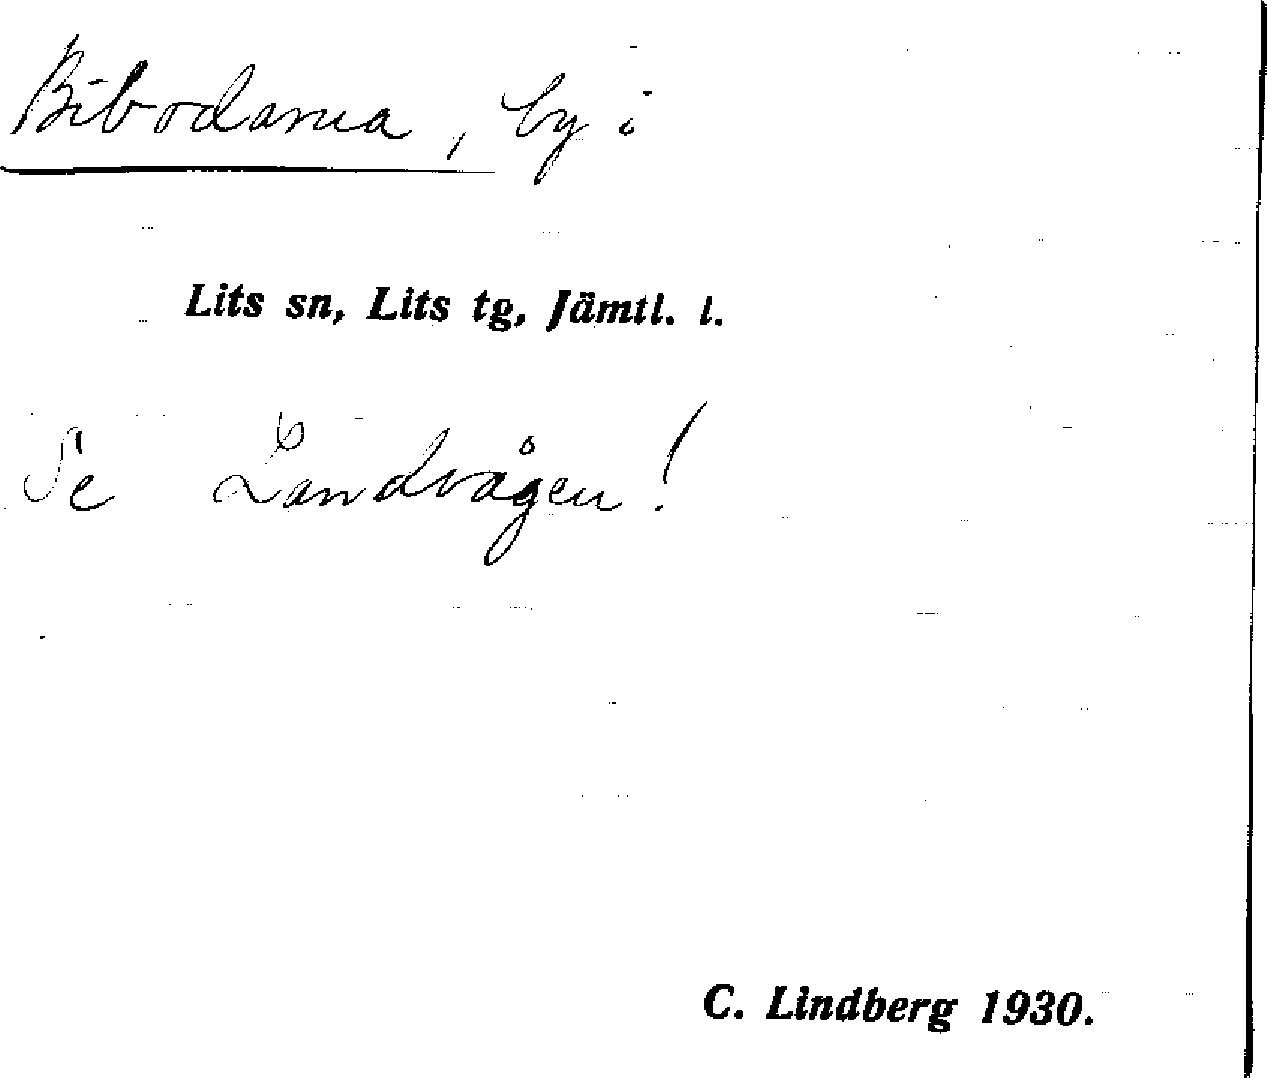 Bibodarna, by i
Lits sn, Lits tg, Jämtl. l.
Se Landvågen!
C. Lindberg 1930.